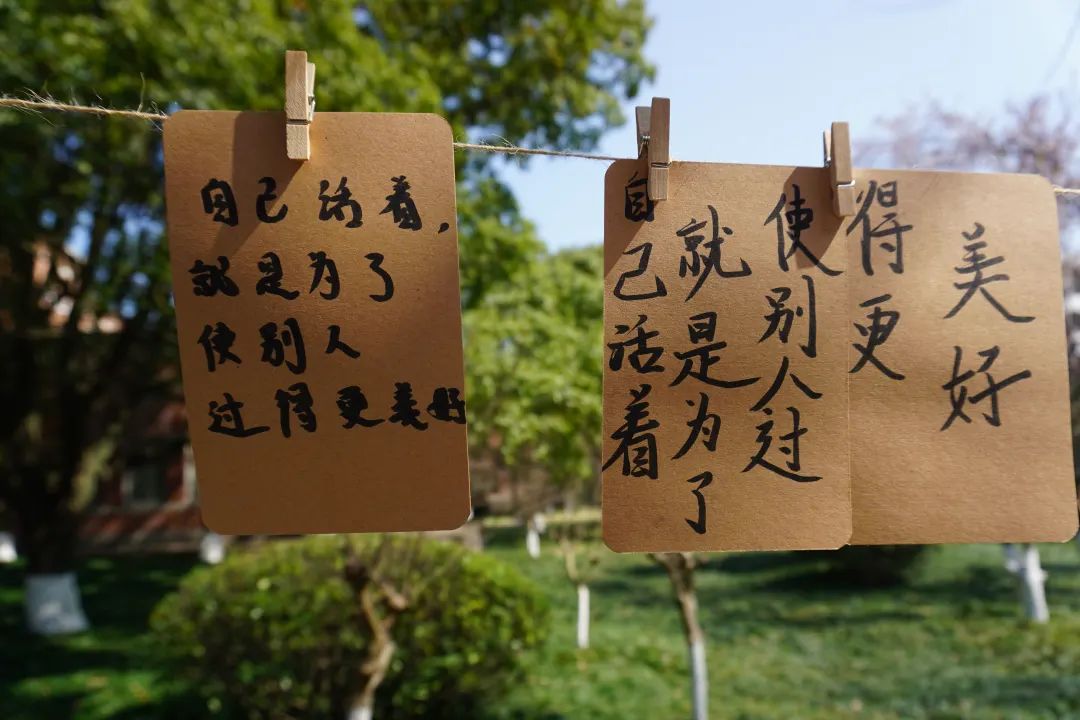 自己活着，
就是为了
使别人
过得更美好
自己活着
就是为了
使别人过
得更
美好